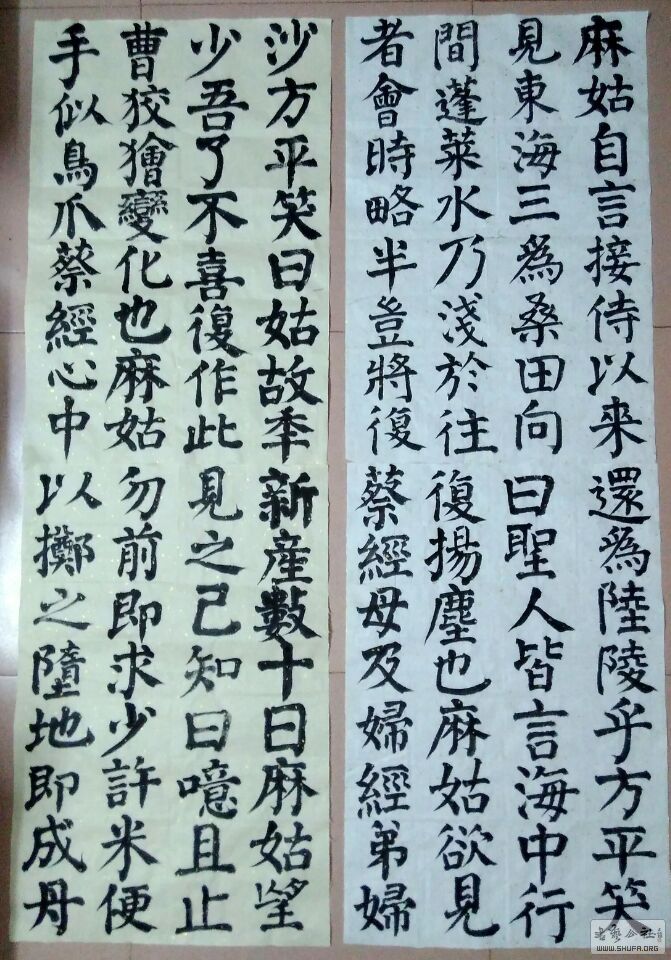 麻姑自言接侍以来
見東海三為桑田向
間蓬莱水乃淺於往
者會時略半豈將復
還為陸陵乎方平笑
曰聖人皆言海中行
復揚塵也麻姑欲見
蔡經母及婦經弟婦
新產數十日麻姑望
見之己知曰噫且止
勿前即求少許米便
以擲之墮地即成丹
沙方平笑曰姑故季
少吾了不喜復作此
曹狡獪變化也麻姑
手似鳥爪蔡經心中
WWW.SHUFA.ORG